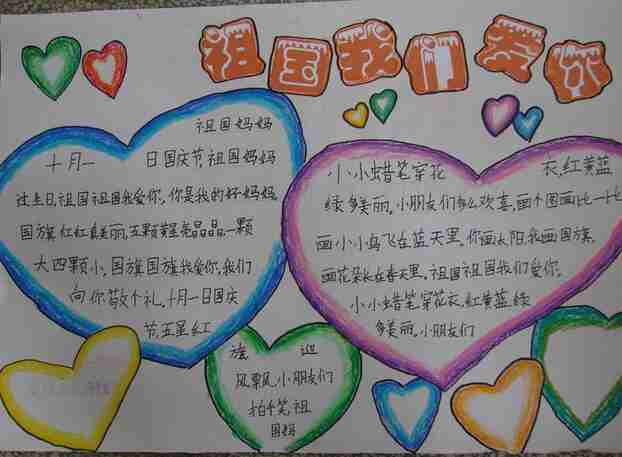 祖国我们爱你
祖国妈妈
十月一 日国庆节祖国妈妈
过生日,祖国祖国我爱你,你是我的好妈妈。
国旗红红真美丽,五颗黄星亮晶晶,一颗
大四颗小,国旗国旗我爱你,我们
向你敬个礼。十月一日国庆
节,五星红
旗 迎
风飘,小朋友们
拍手笑,祖
国妈
小小蜡笔穿花 衣,红黄蓝
绿多美丽。小朋友们多么欢喜,画个图画比一比
画小小鸟飞在蓝天里,你画太阳,我画国旗,
画花朵长在春天里。祖国祖国我们爱你。
小小蜡笔穿花衣,红黄蓝绿
多美丽。小朋友们